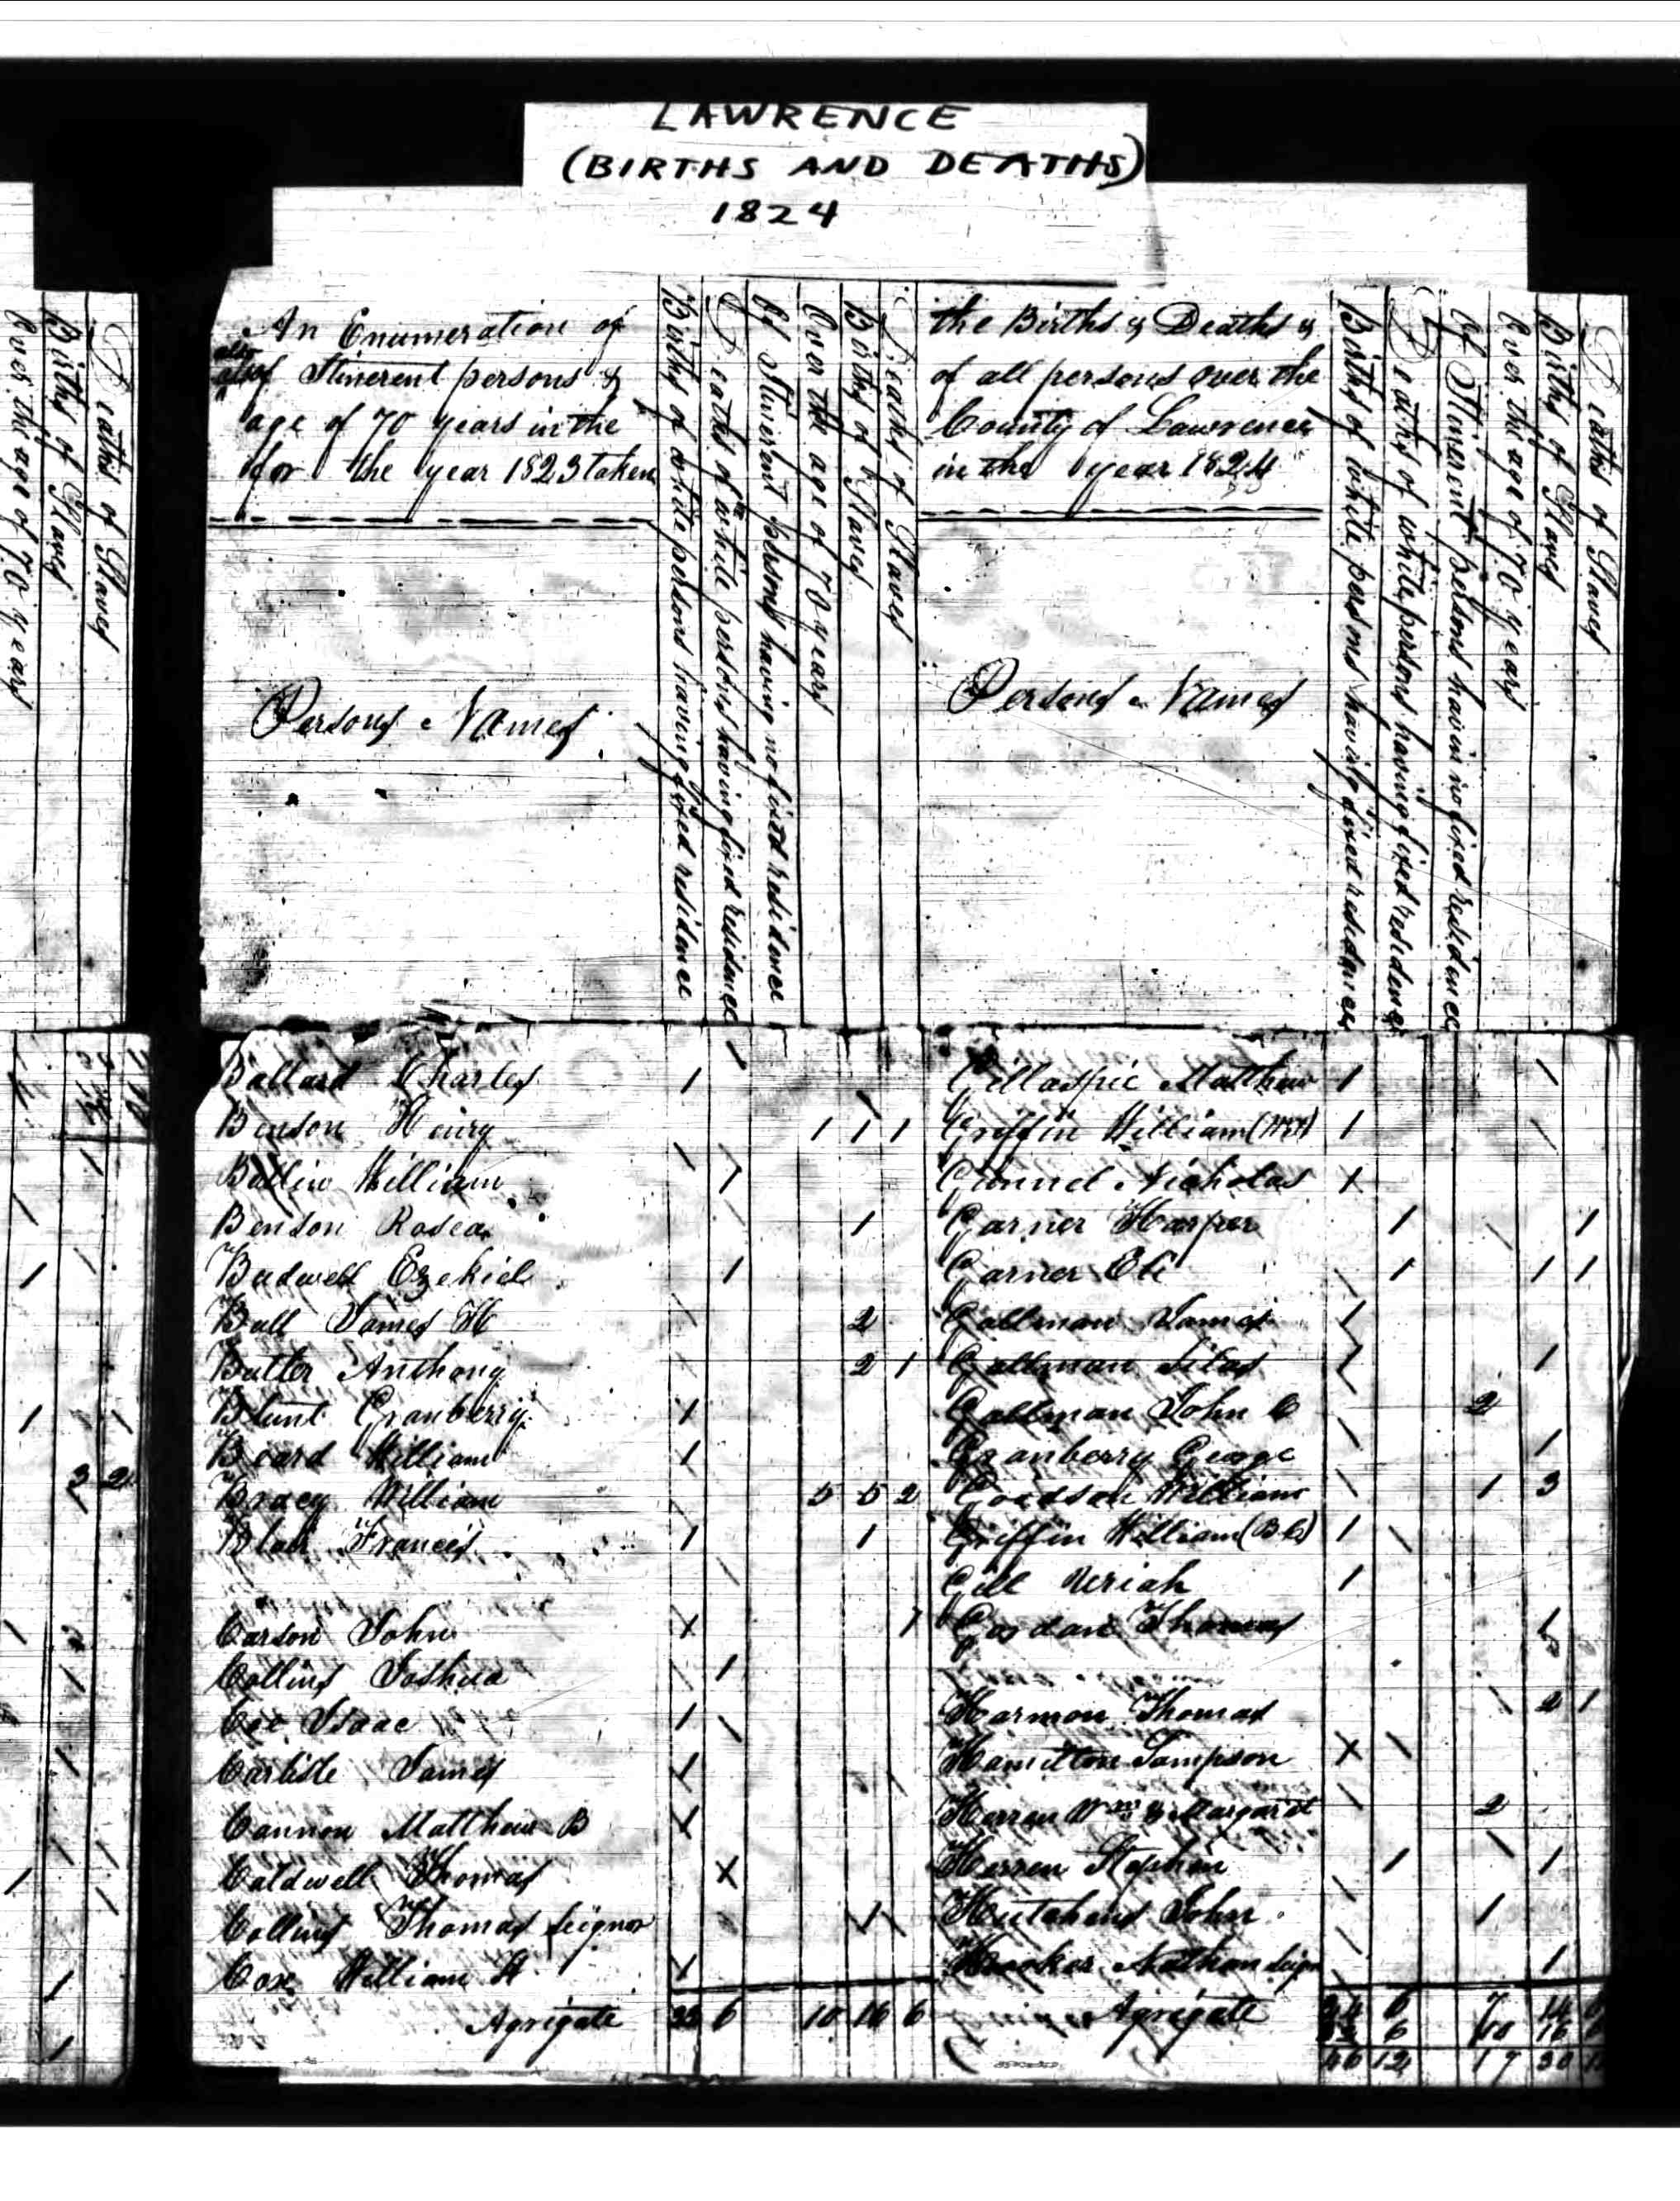 LAWRENCE
(BIRTHS AND DEATHS)
1824
An Enumeration of
also
of Itinerent persons &
age of 70 years in the
for the year 1823 taken
Persons Names
Births of white persons having fixed residence
Deaths of white persons having fixed residence
Of Itinerent persons having no fixed residence
Over the age of 70 years
Births of Slaves
Deaths of Slaves
the Births & Deaths &
of all persons over the
County of Lawrence
in the year 1824
Persons Names
Births of white persons having fixed residence
Deaths of white persons having fixed residence
Of Itinerent persons havin no fixed residence
Over the age of 70 years
Births of Slaves
Deaths of Slaves
Births of Slaves
Over the age of 70 years
Deaths of Slaves
Ballard Charles 1
Benson Henry 1 1 1
William 1
Benson Rosea 1
Bedwell Ezekiel 1
Ball James H 2
Butler Anthony 2 1
Blunt Granberry 1
Beard William 1
Bracy William 5 5 2
Blair Francis 1 1
Carson John 1 1
Collins Joshua 1
Coe Isaac 1
Carlisle James 1
Cannon Matthew B 1
Caldwell Thomas 1
Collins Thomas Seignor 1
Cox William H 1
Agrigate 6 10 16 6
Gillaspie Matthew 1
Griffin William 1
Gunnel Nicholas 1
Garner Harper 1 1
Garner Eli 1 1 1
Gallman James 1
Gallman Silas 1 1
Gallman John C 2
Granberry George 1
Goodson William 1 3
Griffin William (B.C.) 1
Gill Uriah 1
Gordan Thomas 1
Harmon Thomas 2 1
Hamilton Sampson 1
Herren Wm & Margaret 2
Herren Stephen 1 1
Hutchins John 1
Hooker Nathan 1
Agrigate 24 6 7 14
6 10 16
46 12 17 30